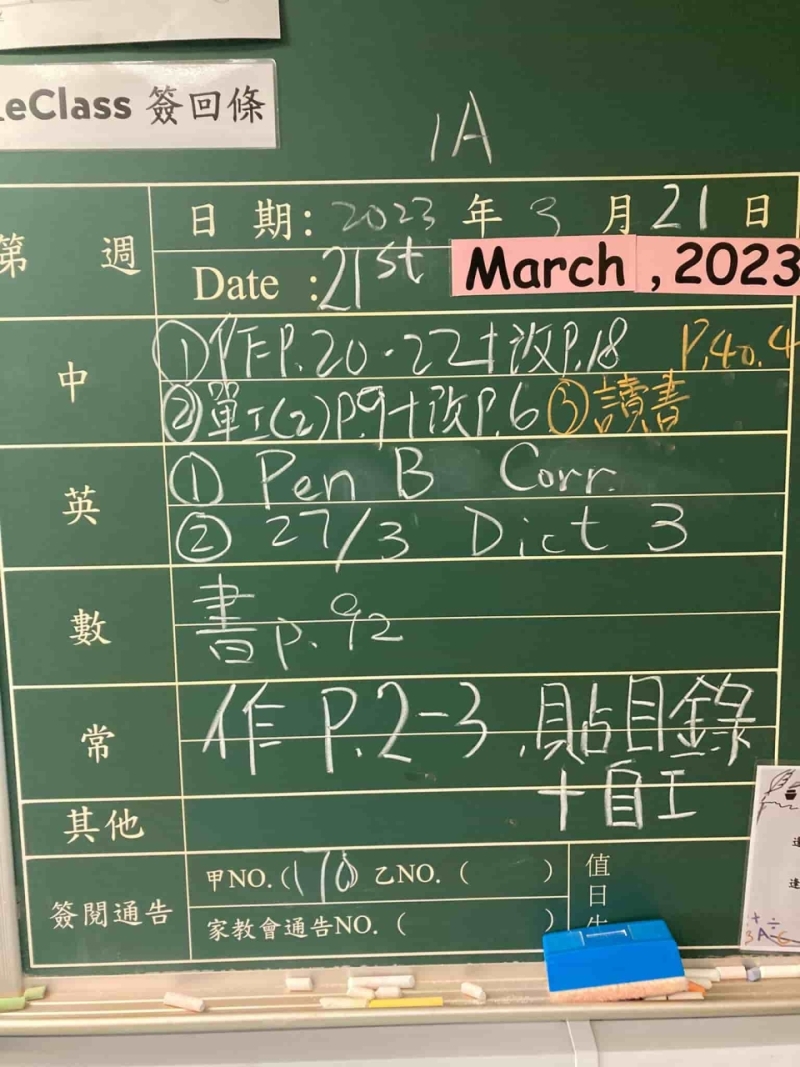 eClass 簽回條
1A
第 週
日 期: 2023 年 3 月 21 日
Date : 21st March , 2023
中
① 作 P.20-22 + 改 P.18 P.40.4
② 單工(2) P.9 + 改 P.6 ③ 讀書
英
① Pen B Corr.
② 27/3 Dict 3
數
書 P. 92
常
作 P.2-3 . 貼目錄
+ 自工
其他
簽閱通告
甲NO.(170) 乙NO. ( )
家教會通告NO. ( )
值日